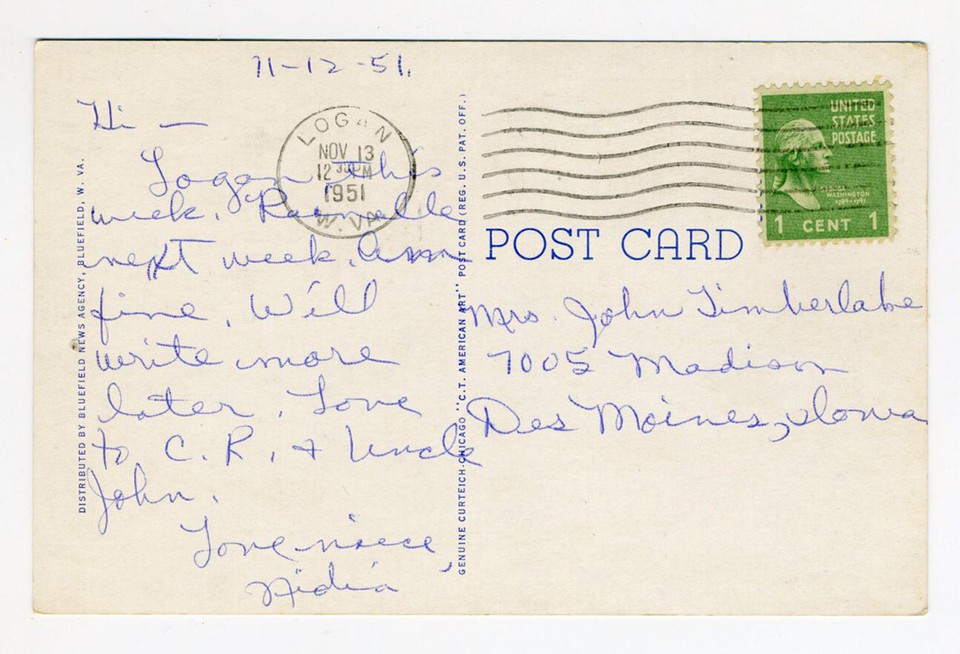 11-12-51.
Hi —
Logan this
week. Rainelle
next week. Am
fine. Will
write more
later. Love
to C. R. + Uncle
John.
Love niece,
Nidia
LOGAN
NOV 13
12 30 PM
1951
W. VA.
UNITED
STATES
POSTAGE
GEORGE
WASHINGTON
1 CENT 1
POST CARD
Mrs. John Timberlake
7005 Madison
Des Moines, Iowa
DISTRIBUTED BY BLUEFIELD NEWS AGENCY, BLUEFIELD, W. VA.
GENUINE CURTEICH-CHICAGO "C.T. AMERICAN ART" POST CARD (REG. U.S. PAT. OFF.)